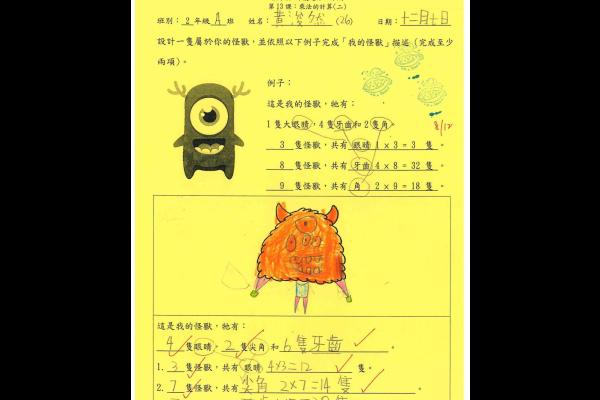 第13課：乘法的計算(二)
班別：2年級A班 姓名：黃浚然 (26) 日期：十二月十日
設計一隻屬於你的怪獸，並依照以下例子完成「我的怪獸」描述（完成至少
兩項）。
例子：
這是我的怪獸，牠有：
1隻大眼睛，4隻牙齒和2隻角。
3 隻怪獸，共有 眼睛 1 × 3 = 3 隻。
8 隻怪獸，共有 牙齒 4 × 8 = 32 隻。
9 隻怪獸，共有 角 2 × 9 = 18 隻。
這是我的怪獸，牠有：
4 隻眼睛，2 隻尖角 和 6 隻牙齒。
1. 3 隻怪獸，共有 眼睛 4×3=12 隻。
2. 7 隻怪獸，共有 尖角 2×7=14 隻。